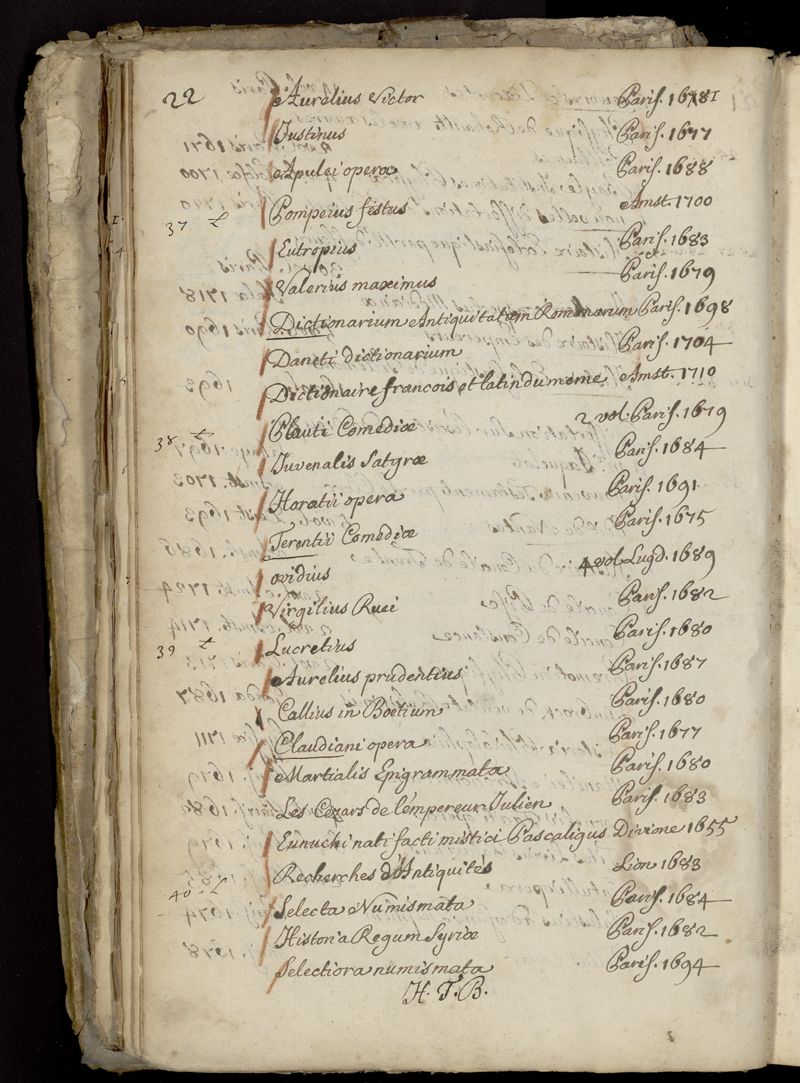 22
Aurelius Victor Paris. 1681
Justinus Paris. 1677
Apulei opera Paris. 1688
Pompeius festus Amst. 1700
37 L
Eutropius Paris. 1683
Valerius maximus Paris. 1679
Dictionarium Antiquitatum Romanarum Paris. 1698
Daneti dictionarium Paris. 1704
Dictionaire francois et latin du meme Amst. 1710
Plauti Comediæ 2 vol. Paris. 1679
38 L
Juvenalis Satyræ Paris. 1684
Horatii opera Paris. 1691
Terentii Comediæ Paris. 1675
ovidius 4 vol. Lugd. 1689
Virgilius Ruei Paris. 1682
39 L
Lucretius Paris. 1680
Aurelius prudentius Paris. 1687
Callius in Boetium Paris. 1680
Claudiani opera Paris. 1677
Martialis Epigrammata Paris. 1680
Les Cezars de l'empereur Julien Paris. 1683
Eunuchi nati facti mistici Pascaligus Divione 1655
Recherches d'Antiquités Lion 1683
40 L
Selecta Numismata Paris. 1684
Historia Regum Syriæ Paris. 1682
Selectiora numismata Paris. 1694
H. T. B.